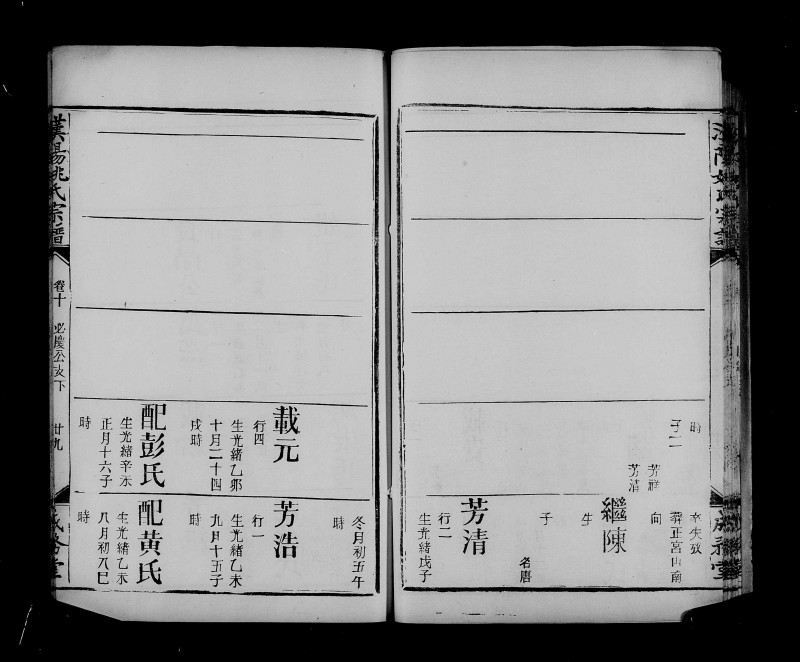 時
子二
芳禮
芳清
卒失攷
葬正宮山南
向
繼陳
生
子
名唐
芳清
行二
生光緒戊子
冬月初五午
時
載元
行四
生光緒乙卯
十月二十四
戌時
配彭氏
生光緒辛未
正月十六子
時
芳浩
行一
生光緒乙未
九月十五子
時
配黄氏
生光緒乙未
八月初八巳
時
漢陽姚氏宗譜
卷十
必慶公支下
廿九